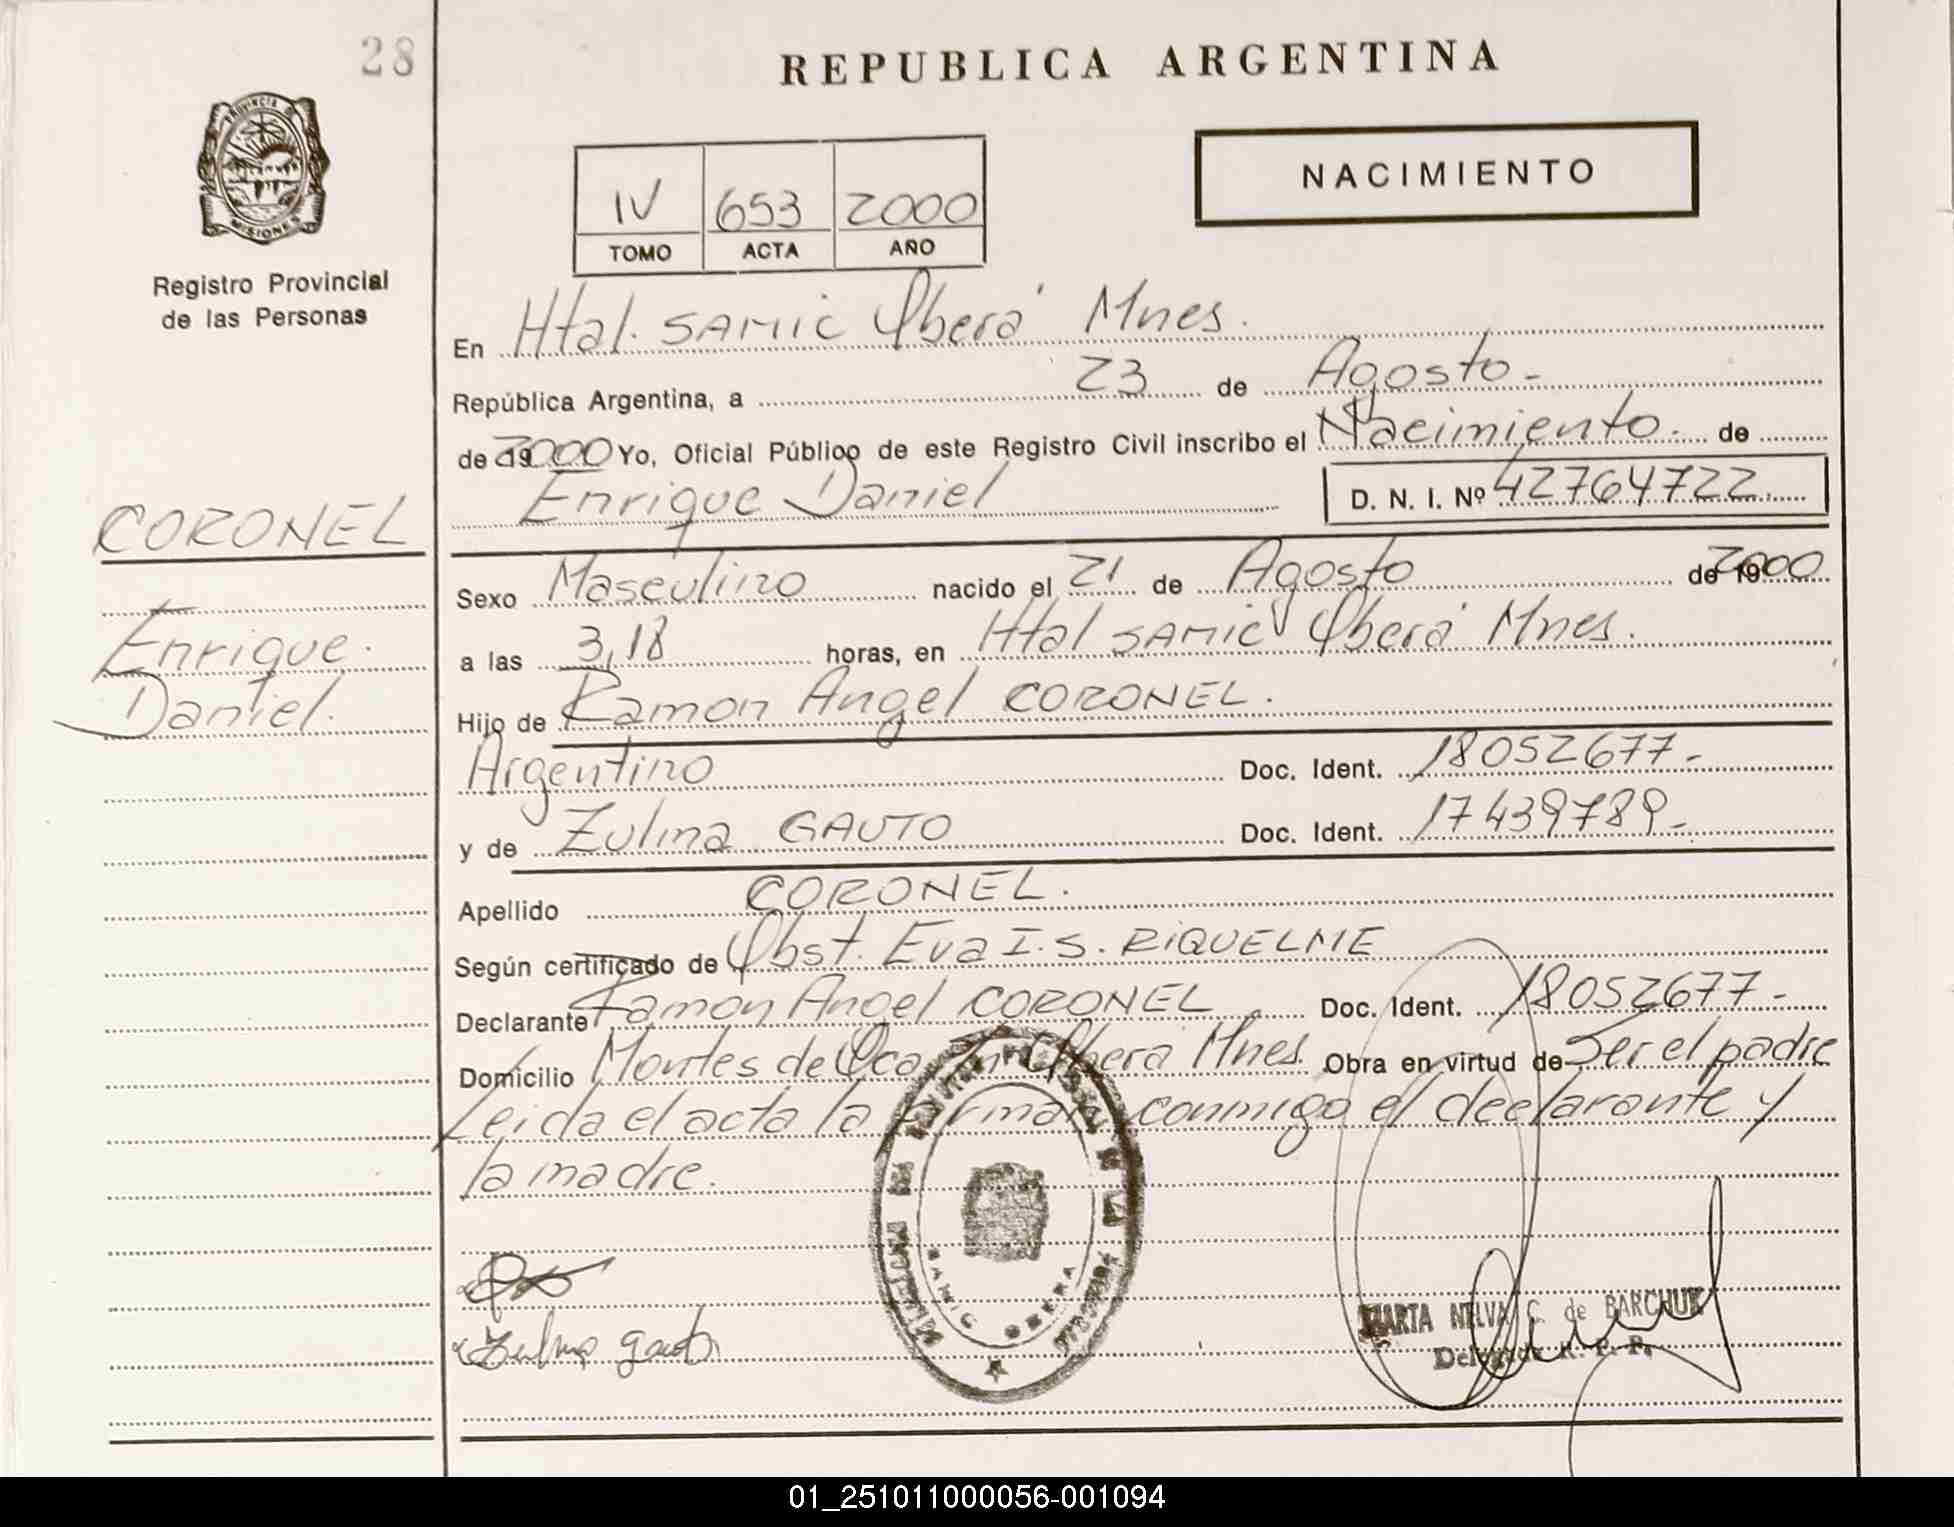 28
REPUBLICA ARGENTINA
NACIMIENTO
IV 653 2000
TOMO ACTA AÑO
Registro Provincial
de las Personas
En Htal. SAMIC Oberá Mnes.
República Argentina, a 23 de Agosto-
de 2000 Yo, Oficial Público de este Registro Civil inscribo el Nacimiento. de
Enrique Daniel D. N. I. Nº 42764722
CORONEL
Enrique.
Daniel.
Sexo Masculino nacido el 21 de Agosto de 2000
a las 3,18 horas, en Htal SAMIC Oberá Mnes.
Hijo de Ramon Angel CORONEL.
Argentino Doc. Ident. 18052677-
y de Zulma GAUTO Doc. Ident. 17439789-
Apellido CORONEL.
Según certificado de Obst. Eva I. S. RIQUELME
Declarante Ramon Angel CORONEL Doc. Ident. 18052677-
Domicilio Montes de Oca Oberá Mnes. Obra en virtud de Ser el padre
Leida el acta la firman conmigo el declarante y
la madre.
Zulma gauto
SAMIC OBERA
MARTA NELVA C. de BARCHUK
Delegada R. P. P.
01_251011000056-001094